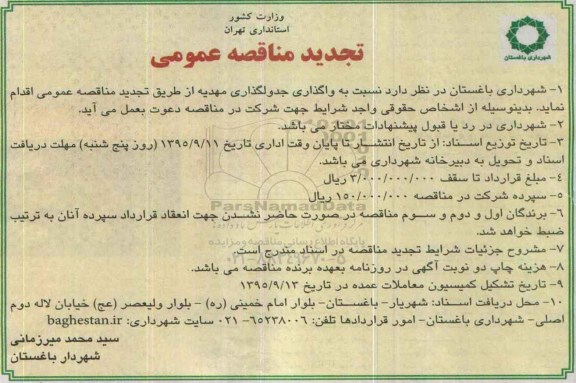 وزارت کشور
استانداری تهران
شهرداری باغستان
تجدید مناقصه عمومی
۱- شهرداری باغستان در نظر دارد نسبت به واگذاری جدولگذاری مهدیه از طریق تجدید مناقصه عمومی اقدام
نماید. بدینوسیله از اشخاص حقوقی واجد شرایط جهت شرکت در مناقصه دعوت بعمل می آید.
۲- شهرداری در رد یا قبول پیشنهادات مختار می باشد.
۳- تاریخ توزیع اسناد: از تاریخ انتشار تا پایان وقت اداری تاریخ ۱۳۹۵/۹/۱۱ (روز پنج شنبه) مهلت دریافت
اسناد و تحویل به دبیرخانه شهرداری می باشد.
۴- مبلغ قرارداد تا سقف ۳/۰۰۰/۰۰۰/۰۰۰ ریال
۵- سپرده شرکت در مناقصه ۱۵۰/۰۰۰/۰۰۰ ریال
۶- برندگان اول و دوم و سوم مناقصه در صورت حاضر نشدن جهت انعقاد قرارداد سپرده آنان به ترتیب
ضبط خواهد شد.
۷- مشروح جزئیات شرایط تجدید مناقصه در اسناد مندرج است.
۸- هزینه چاپ دو نوبت آگهی در روزنامه بعهده برنده مناقصه می باشد.
۹- تاریخ تشکیل کمیسیون معاملات عمده در تاریخ ۱۳۹۵/۹/۱۳
۱۰- محل دریافت اسناد: شهریار- باغستان- بلوار امام خمینی (ره) - بلوار ولیعصر (عج) خیابان لاله دوم
اصلی- شهرداری باغستان- امور قراردادها تلفن: ۶۵۲۳۸۰۰۶- ۰۲۱ سایت شهرداری: baghestan.ir
سید محمد میرزمانی
شهردار باغستان
ParsNamadData
پایگاه اطلاع رسانی مناقصه و مزایده
۰۲۱-۸۸۳۴۹۶۷۰-۵